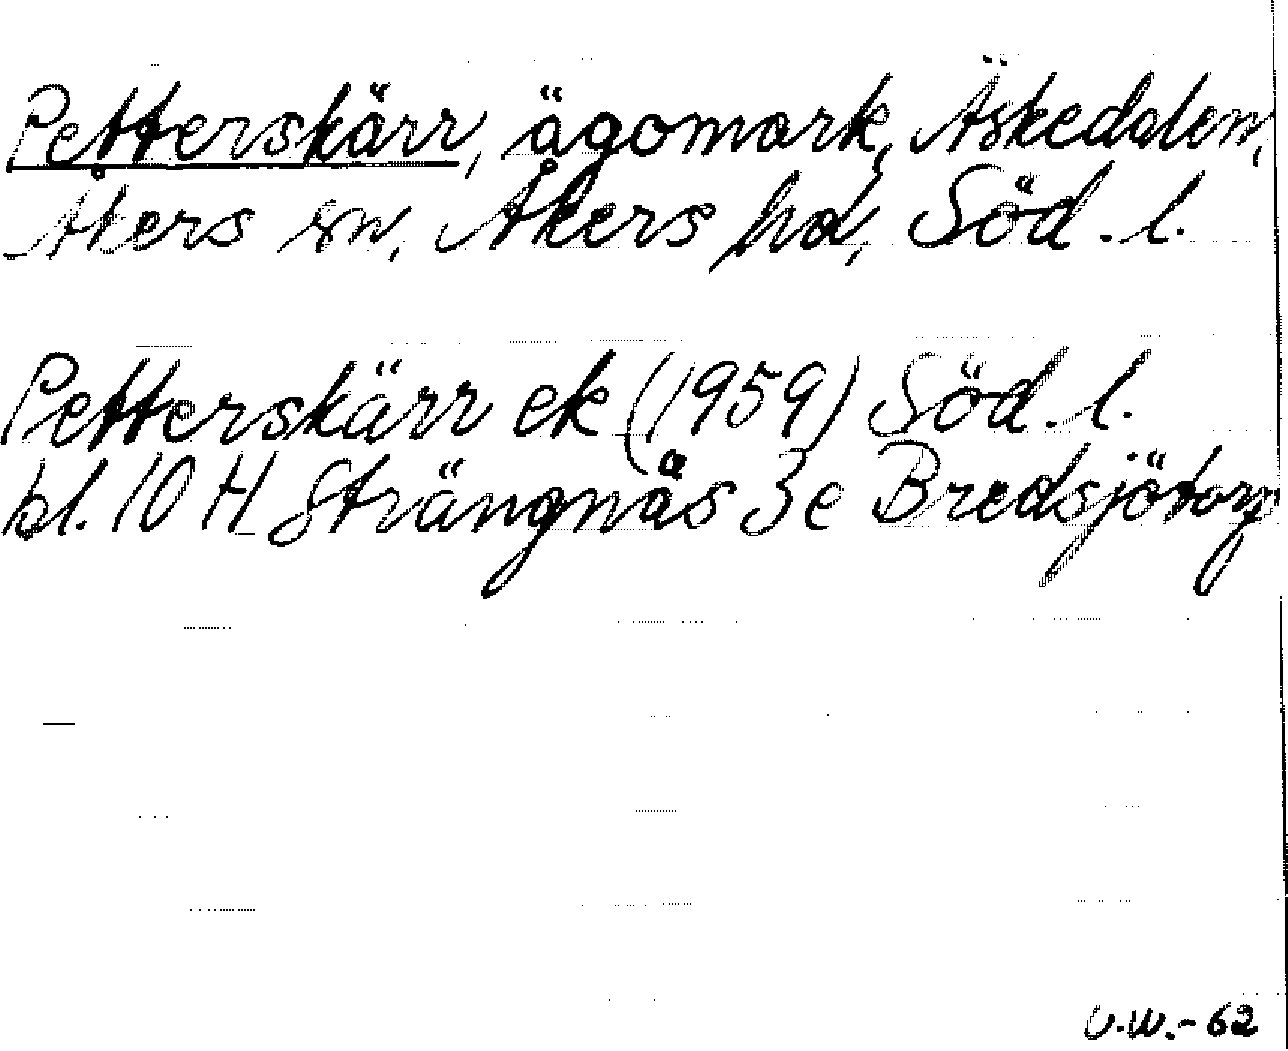 Petterskärr, ägomark, Äskedalen,
Åkers sn, Åkers hd, Söd. l.
Petterskärr ek (1959) Söd. l.
bl. 10 H Strängnäs 3 e Bredsjötorp
U.W.-62